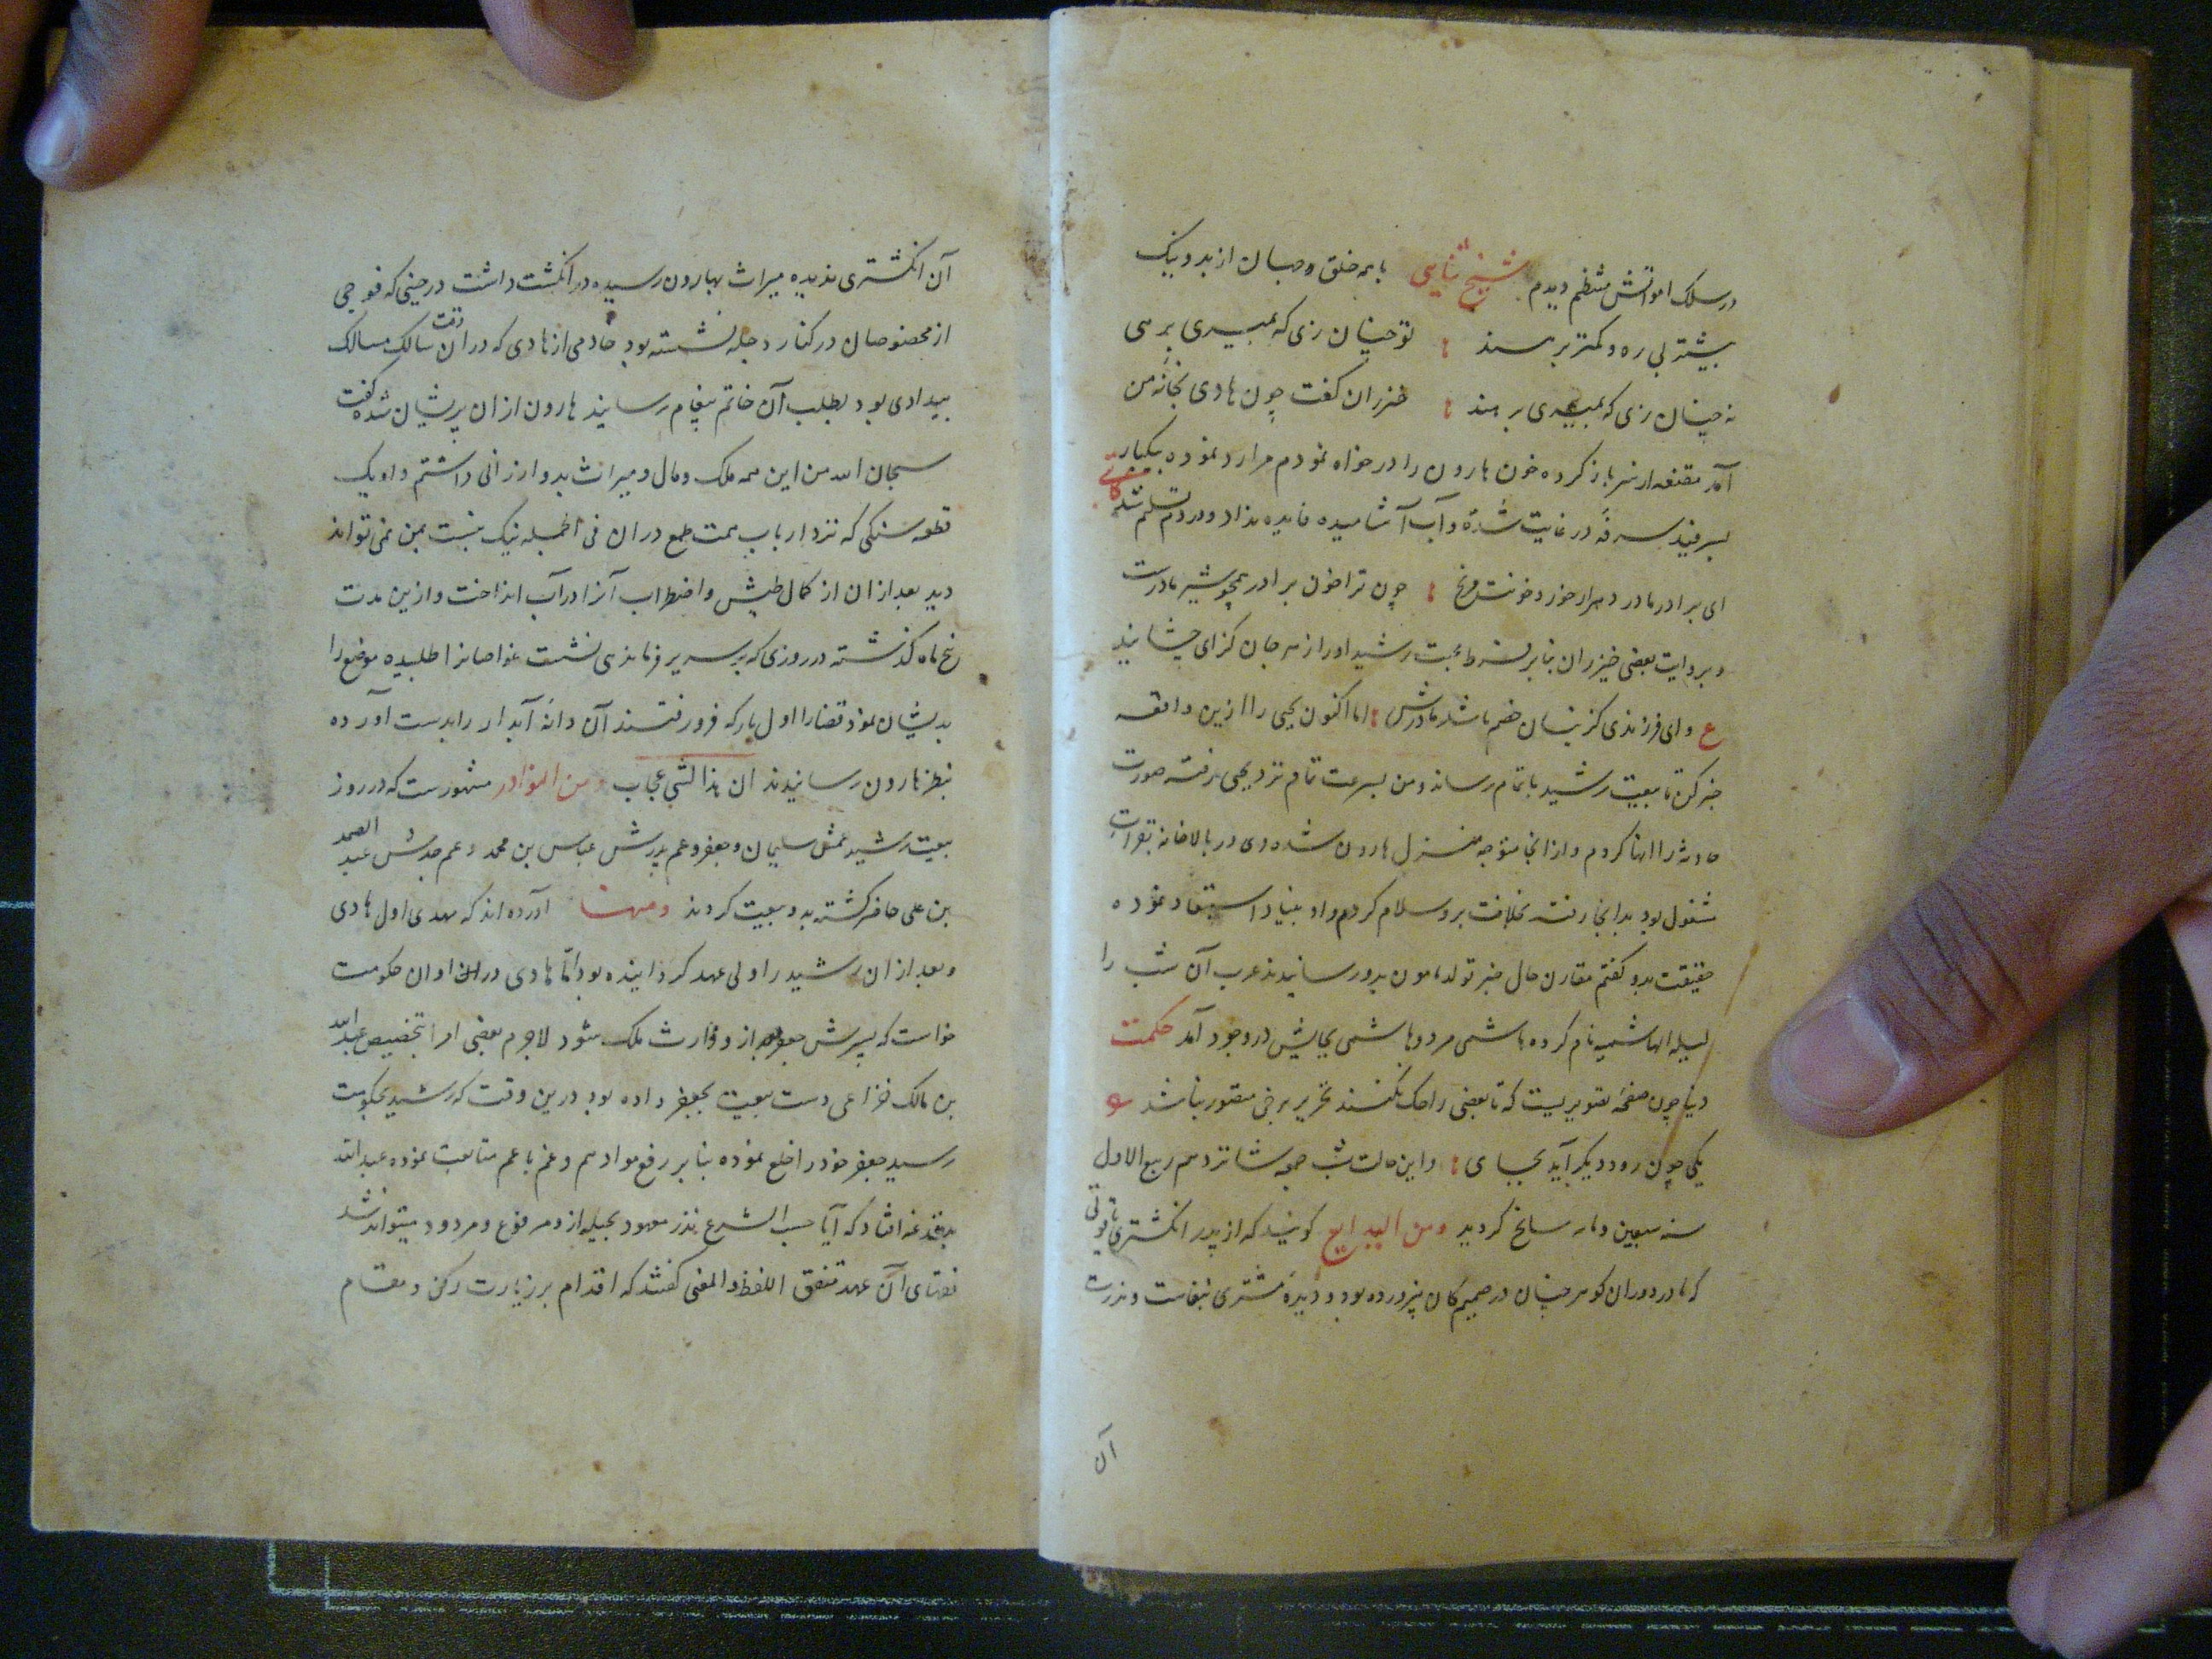 در سلک امواتش منتظم دیدم شیخ سنایی با همه خلق جهان از بد و نیک
بیشتر بی ره و کمتر برهند تو چنان زی که بمیری برهی
نه چنان زی که بمیری برهند خیزران گفت چون هادی بخانه من
آمد مقنعه از سر باز کرده خون هارون را درخواه نمودم مرا رد نموده بیکبار
بسرفید سرفه در غایت شده و آب آشامیده فایده نداد و در دم تسلیم شد
ای برادر مادر دهر ار خورد خونت مرنج چون ترا خون برادر همچو شیر مادرست
و بروایت بعضی خیزران بنابر فرط محبت رشید او را زهر جان گزای چشانید
ع وای فرزندی کزینسان خصم باشد مادرش اما اکنون یحیی را ازین واقعه
خبر کن تا بیعت رشید باتمام رساند و من بسرعت تمام نزد یحیی رفته صورت
حادثه را انها کردم و از انجا متوجه منزل هارون شده وی در بالاخانه بقرات
مشغول بود بدانجا رفته بخلافت برو سلام کردم و او بنیاد استبعاد نموده
حقیقت بدو گفتم مقارن حال خبر تولد مامون بدو رسانیدند عرب آن شب را
لیله الهاشمیه نام کرده هاشمی مرد و هاشمی بجایش در وجود آمد حکمت
دنیا چون صفحه تقویریست که تا بعضی را حک نکنند تحریر برخی مقدور نباشد
یکی چون رود دیگر آید بجای و این حالت شب جمعه شانزدهم ربیع الاول
سنه سبعین و مایه سانح گردید ومن البدایع گویند که از پدر انگشتری یاقوتی
که مادر دوران گوهر چنان در صمیم کان نپرورده بود و دیده مشتری بنفاست و ندرت
آن
آن انگشتری ندیده میراث بهارون رسیده در انگشت داشت در حینی که فوجی
از مخصوصان در کنار دجله نشسته بود خادمی از هادی که در ان وقت سالک مسالک
بیدادی بود بطلب آن خاتم پیغام رسانید هارون از ان پریشان شده گفت
سبحان الله من این همه ملک و مال و میراث بدو ارزانی داشتم و او یک
قطعه سنگی که نزد ارباب همت طمع در ان فی الجمله نیک نیست بمن نمی تواند
دید بعد از ان از کمال طیش و اضطراب آنرا در آب انداخت و ازین مدت
پنج ماه گذشته در روزی که بر سریر فرماندهی نشست غواصانرا طلبیده موضع را
بدیشان نمود قضا را اول بار که فرو رفتند آن دانه آبدار را بدست آورده
بنظر هارون رسانیدند ان هذا لشی عجاب ومن النوادر مشهورست که در روز
بیعت رشید عمش سلیمان و جعفر و عم پدرش عباس بن محمد و عم جدش عبد الصمد
بن علی حاضر گشته بدو بیعت کردند ومنها آورده اند که مهدی اول هادی
و بعد از ان رشید را ولی عهد گردانیده بود اما هادی در ان اوان حکومت
خواست که پسرش جعفر از و وارث ملک شود لاجرم بعضی امرا بتخصیص عبدالله
بن مالک خزاعی دست بیعت بجعفر داده بود درین وقت که رشید بحکومت
رسید جعفر خود را خلع نموده بنابر رفع مواد هم و غم با عم متابعت نموده عبدالله
بدغدغه افتاد که آیا حسب الشرع نذر معهود بحیله از و مرفوع و مردود میتواند شد
فقهای آن عهد متفق اللفظ والمعنی گفتند که اقدام بر زیارت رکن و مقام